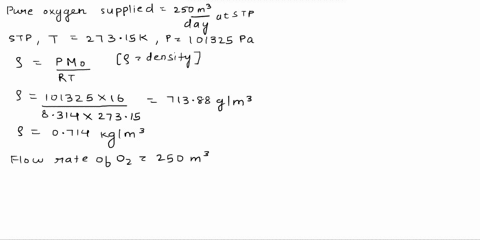 Pure oxygen supplied = 250 m³/day at STP
STP, T = 273.15K, P = 101325 Pa
ρ = PM₀/RT [ρ → density]
ρ = 101325 × 16 / 8.314 × 273.15 = 713.88 g/m³
ρ = 0.714 kg/m³
Flow rate of O₂ = 250 m³